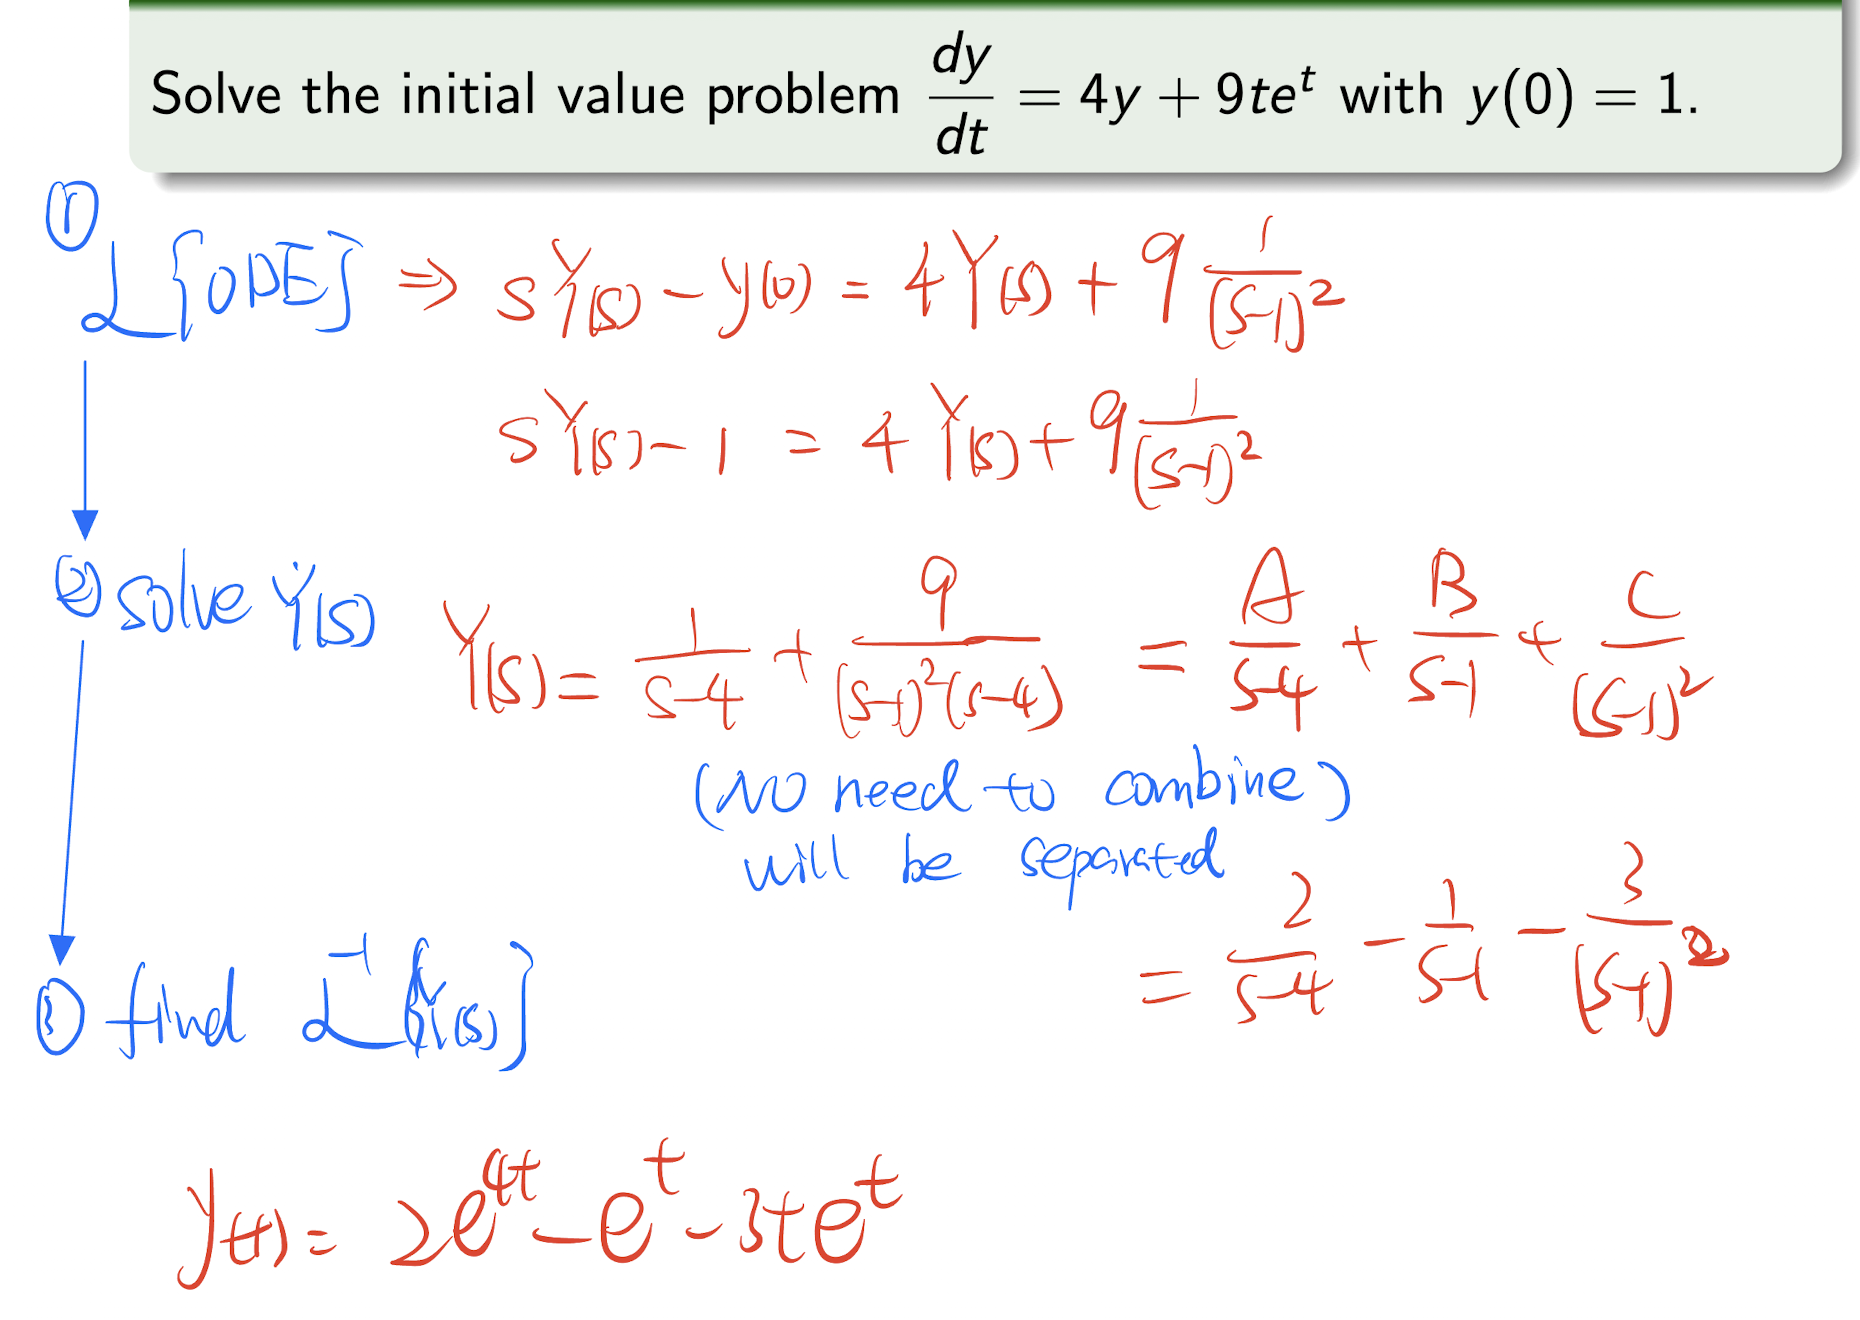 Solve the initial value problem dy/dt = 4y + 9te^t with y(0) = 1.
① L{ODE} ⇒ sY(s) - y(0) = 4Y(s) + 9 1/(s-1)^2
sY(s) - 1 = 4Y(s) + 9 1/(s-1)^2
② solve Y(s) Y(s) = 1/(s-4) + 9/((s-1)^2(s-4)) = A/(s-4) + B/(s-1) + C/(s-1)^2
(NO need to combine)
will be separated
= 2/(s-4) - 1/(s-1) - 3/(s-1)^2
③ find L^-1{Y(s)}
y(t) = 2e^4t - e^t - 3te^t